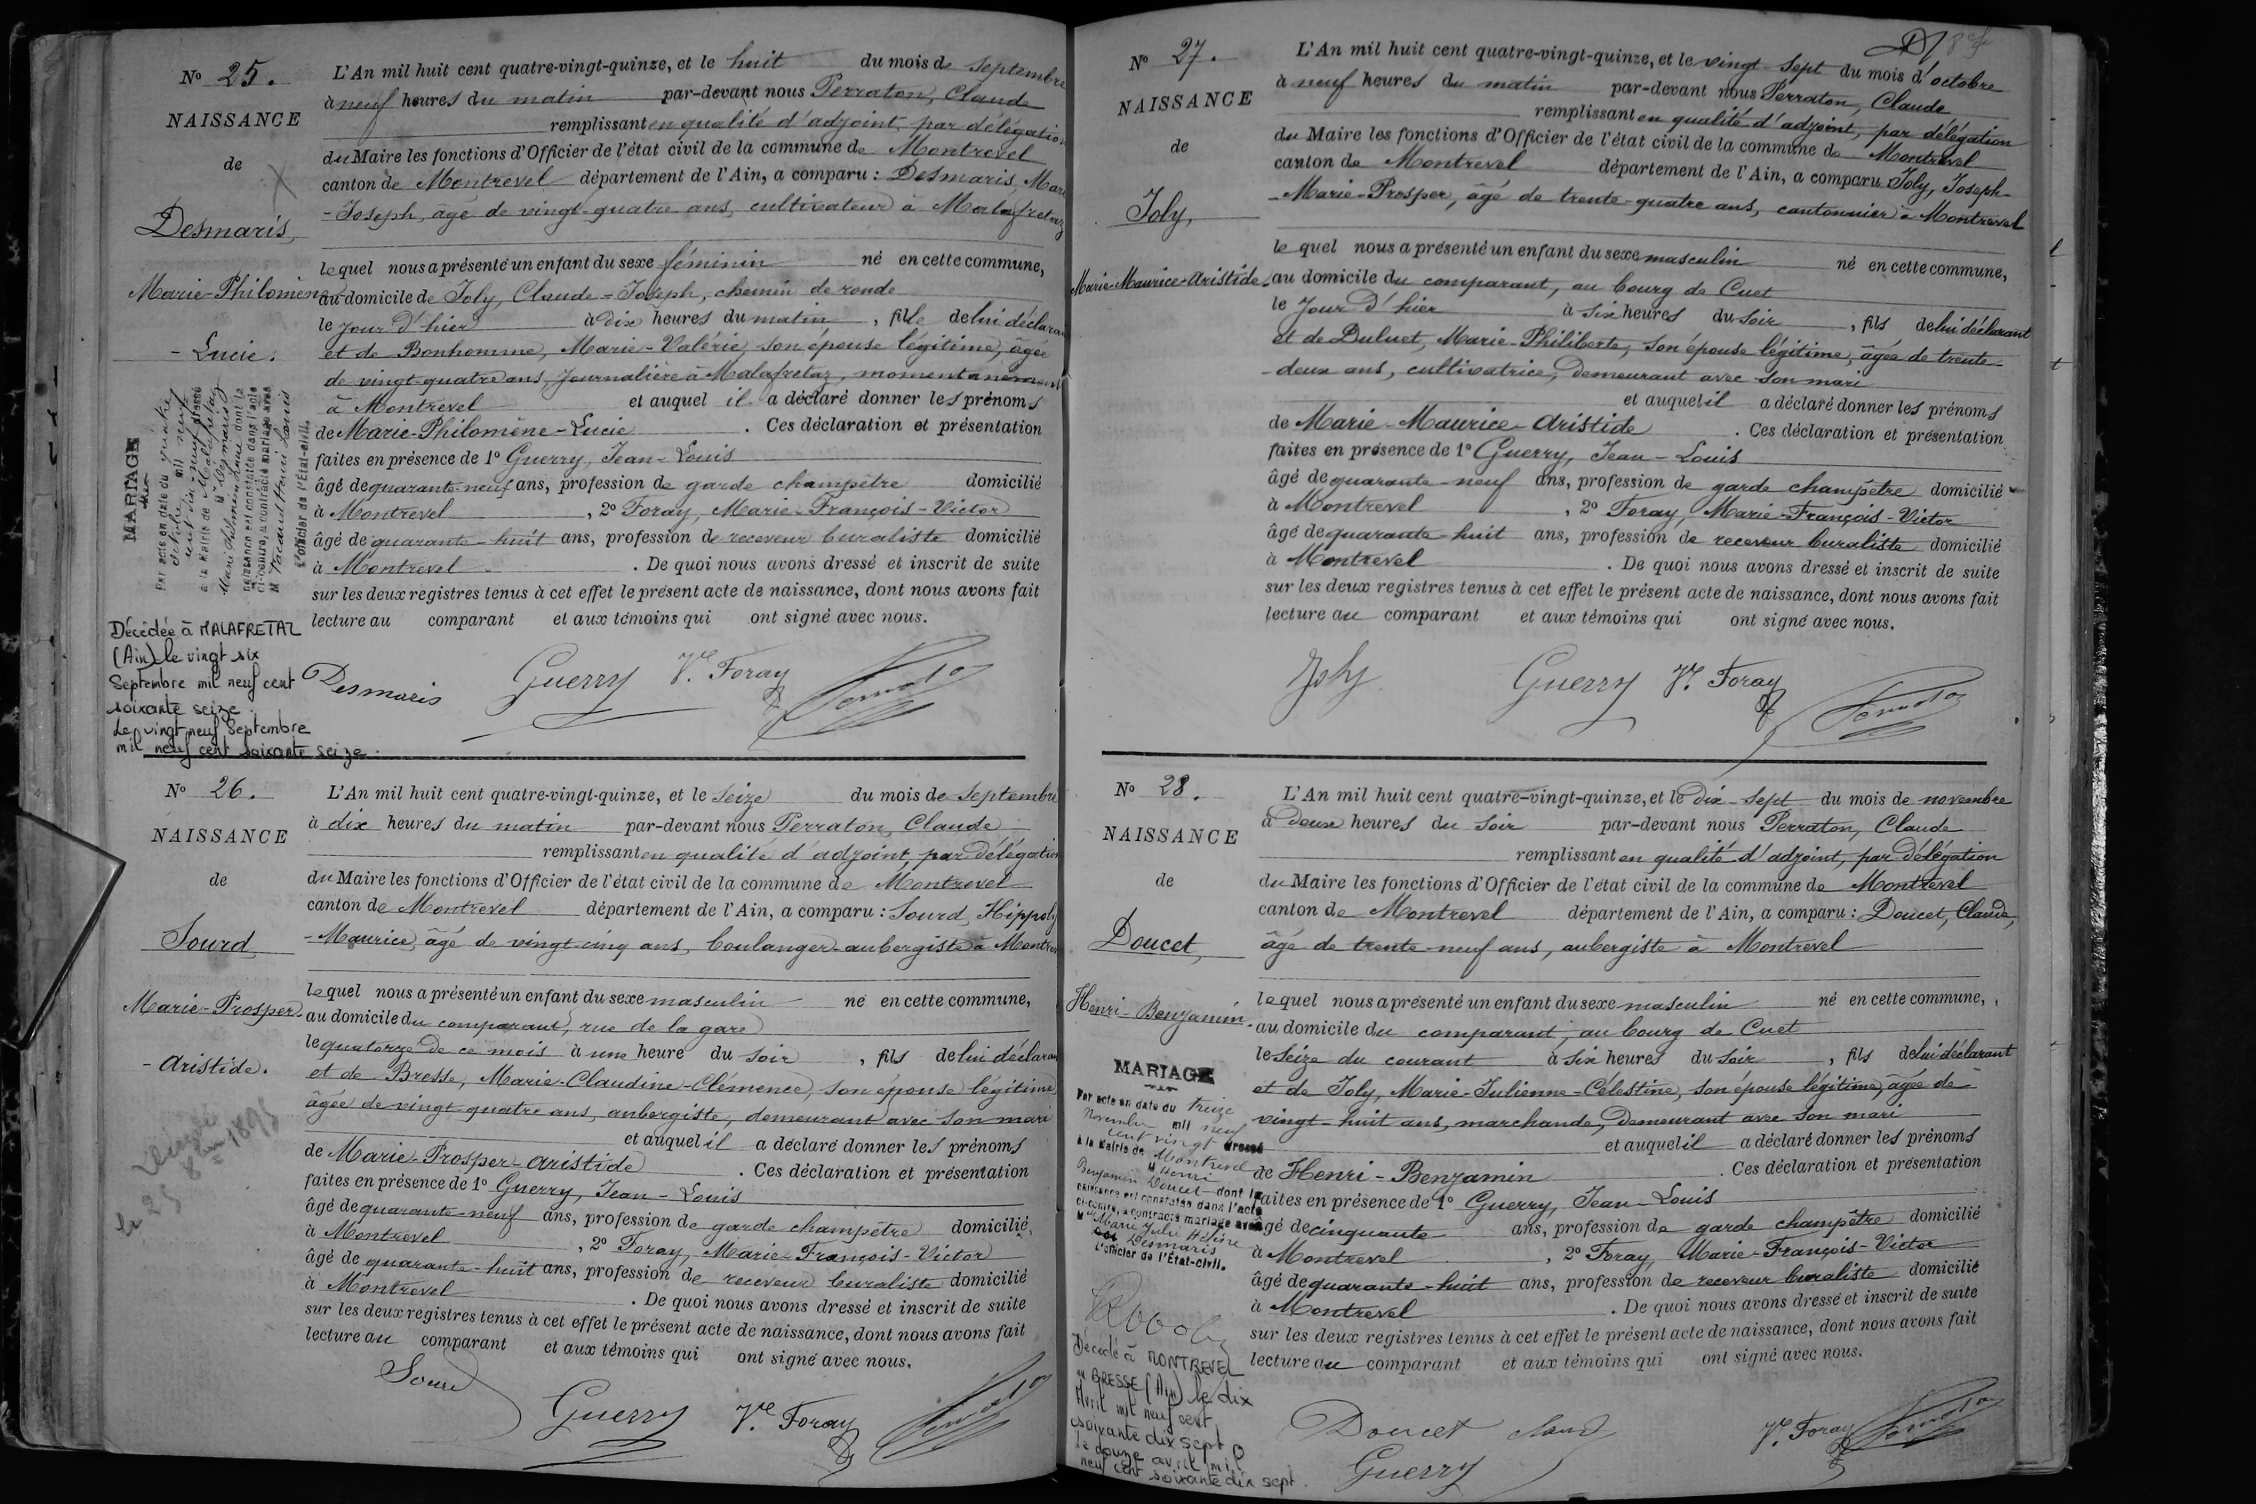 N° 25.
NAISSANCE
de
Desmaris,
Marie-Philomène
- Lucie.
MARIAGE
Par acte en date du quatre
octobre mil neuf
cent dressé
à la Mairie de Malafretaz
M Desmaris
dont la
naissance est constatée dans l'acte
ci-contre, a contracté mariage avec
M Henri Louis
L'officier de l'État-civil.
Décédée à MALAFRETAZ
(Ain) le vingt six
Septembre mil neuf cent
soixante seize
Le vingt neuf Septembre
mil neuf cent soixante seize.
L'An mil huit cent quatre-vingt-quinze, et le huit du mois de Septembre
à neuf heures du matin par-devant nous Perraton, Claude
remplissant en qualité d'adjoint, par délégation
du Maire les fonctions d'Officier de l'état civil de la commune de Montrevel
canton de Montrevel département de l'Ain, a comparu : Desmaris, Marie
-Joseph, âgé de vingt-quatre ans, cultivateur à Malafretaz
lequel nous a présenté un enfant du sexe féminin né en cette commune,
au domicile de Joly, Claude-Joseph, chemin de ronde
le jour d'hier à dix heures du matin, fille de lui déclarant
et de Bonhomme, Marie-Valérie, son épouse légitime, âgée
de vingt-quatre ans, journalière à Malafretaz, momentanément
à Montrevel et auquel il a déclaré donner les prénoms
de Marie-Philomène-Lucie . Ces déclaration et présentation
faites en présence de 1° Guerry, Jean-Louis
âgé de quarante-neuf ans, profession de garde champêtre domicilié
à Montrevel , 2° Foray, Marie-François-Victor
âgé de quarante-huit ans, profession de receveur buraliste domicilié
à Montrevel . De quoi nous avons dressé et inscrit de suite
sur les deux registres tenus à cet effet le présent acte de naissance, dont nous avons fait
lecture au comparant et aux témoins qui ont signé avec nous.
Desmaris Guerry Vr. Foray Perraton
N° 26.
NAISSANCE
de
Sourd
Marie-Prosper-
- Aristide.
le 25 8bre 1895
L'An mil huit cent quatre-vingt-quinze, et le seize du mois de Septembre
à dix heures du matin par-devant nous Perraton, Claude
remplissant en qualité d'adjoint, par délégation
du Maire les fonctions d'Officier de l'état civil de la commune de Montrevel
canton de Montrevel département de l'Ain, a comparu : Sourd, Hippoly
-Maurice, âgé de vingt-cinq ans, boulanger-aubergiste à Montrevel
lequel nous a présenté un enfant du sexe masculin né en cette commune,
au domicile du comparant, rue de la gare
le quatorze de ce mois à une heure du soir , fils de lui déclarant
et de Bresse, Marie-Claudine-Clémence, son épouse légitime,
âgée de vingt quatre ans, aubergiste, demeurant avec son mari
et auquel il a déclaré donner les prénoms
de Marie-Prosper-Aristide . Ces déclaration et présentation
faites en présence de 1° Guerry, Jean-Louis
âgé de quarante-neuf ans, profession de garde champêtre domicilié
à Montrevel , 2° Foray, Marie-François-Victor
âgé de quarante-huit ans, profession de receveur buraliste domicilié
à Montrevel . De quoi nous avons dressé et inscrit de suite
sur les deux registres tenus à cet effet le présent acte de naissance, dont nous avons fait
lecture au comparant et aux témoins qui ont signé avec nous.
Sourd Guerry Vr. Foray Perraton
N° 27.
NAISSANCE
de
Joly,
Marie-Maurice-Aristide.
L'An mil huit cent quatre-vingt-quinze, et le vingt-sept du mois d'octobre
à neuf heures du matin par-devant nous Perraton, Claude
remplissant en qualité d'adjoint, par délégation
du Maire les fonctions d'Officier de l'état civil de la commune de Montrevel
canton de Montrevel département de l'Ain, a comparu Joly, Joseph-
-Marie-Prosper, âgé de trente-quatre ans, cantonnier à Montrevel
lequel nous a présenté un enfant du sexe masculin né en cette commune,
au domicile du comparant, au bourg de Cuet
le jour d'hier à six heures du soir , fils de lui déclarant
et de Dulust, Marie-Philiberte, son épouse légitime, âgée de trente-
-deux ans, cultivatrice, demeurant avec son mari
et auquel il a déclaré donner les prénoms
de Marie-Maurice-Aristide . Ces déclaration et présentation
faites en présence de 1° Guerry, Jean-Louis
âgé de quarante-neuf ans, profession de garde champêtre domicilié
à Montrevel , 2° Foray, Marie-François-Victor
âgé de quarante-huit ans, profession de receveur buraliste domicilié
à Montrevel . De quoi nous avons dressé et inscrit de suite
sur les deux registres tenus à cet effet le présent acte de naissance, dont nous avons fait
lecture au comparant et aux témoins qui ont signé avec nous.
Joly Guerry Vr. Foray Perraton
N° 28.
NAISSANCE
de
Doucet,
Henri-Benjamin.
MARIAGE
Par acte en date du treize
novembre mil neuf
cent vingt dressé
à la Mairie de Montrevel
M Henri
Benjamin Doucet dont la
naissance est constatée dans l'acte
ci-contre, a contracté mariage avec
M Marie Julie Hélène
Desmaris
L'officier de l'État-civil.
Décédé à MONTREVEL
en BRESSE (Ain) le dix
Avril mil neuf cent
soixante dix sept
le douze avril mil
neuf cent soixante dix sept.
L'An mil huit cent quatre-vingt-quinze, et le dix-sept du mois de novembre
à deux heures du soir par-devant nous Perraton, Claude
remplissant en qualité d'adjoint, par délégation
du Maire les fonctions d'Officier de l'état civil de la commune de Montrevel
canton de Montrevel département de l'Ain, a comparu : Doucet, Claude,
âgé de trente-neuf ans, aubergiste à Montrevel
lequel nous a présenté un enfant du sexe masculin né en cette commune,
au domicile du comparant, au bourg de Cuet
le seize du courant à six heures du soir , fils de lui déclarant
et de Joly, Marie-Julienne-Célestine, son épouse légitime, âgée de
vingt-huit ans, marchande, demeurant avec son mari
et auquel il a déclaré donner les prénoms
de Henri-Benjamin . Ces déclaration et présentation
faites en présence de 1° Guerry, Jean-Louis
âgé de cinquante ans, profession de garde champêtre domicilié
à Montrevel , 2° Foray, Marie-François-Victor
âgé de quarante-huit ans, profession de receveur buraliste domicilié
à Montrevel . De quoi nous avons dressé et inscrit de suite
sur les deux registres tenus à cet effet le présent acte de naissance, dont nous avons fait
lecture au comparant et aux témoins qui ont signé avec nous.
Doucet Claude Vr. Foray Perraton
Guerry